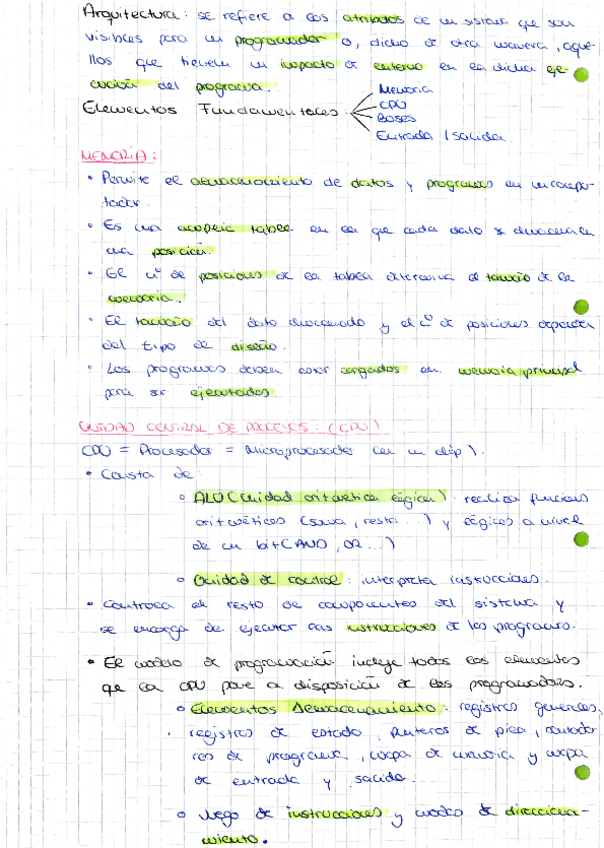 Arquitectura: se refiere a los atributos de un sistema que son
visibles para un programador o, dicho de otra manera, aque-
llos que tienen un impacto directo en la eje-
cución del programa.
Elementos Fundamentales:
Memoria
CPU
Buses
Entrada / salida.
MEMORIA:
• Permite el almacenamiento de datos y programas en un compu-
tador.
• Es una tabla en la que cada dato se almacena en
una posición.
• El nº de posiciones de la tabla determina el tamaño de la
memoria.
• El tamaño del dato almacenado y el nº de posiciones depende
del tipo de diseño.
• Los programas deben estar cargados en memoria principal
para ser ejecutados.
UNIDAD CENTRAL DE PROCESOS: (CPU)
CPU = Procesador = Microprocesador (en un chip).
• Consta de:
o ALU (Unidad aritmética lógica): realiza funciones
aritméticas (suma, resta...) y lógicas a nivel
de un bit (AND, OR...)
o Unidad de control: interpreta instrucciones.
• Controla el resto de componentes del sistema y
se encarga de ejecutar las instrucciones de los programas.
• El modelo de programación incluye todos los elementos
que la CPU pone a disposición de los programadores.
o Elementos Almacenamiento: registros generales,
registros de estado, punteros de pila, contado-
res de programa, mapa de memoria y mapa
de entrada y salida.
o Juego de instrucciones y modos de direcciona-
miento.